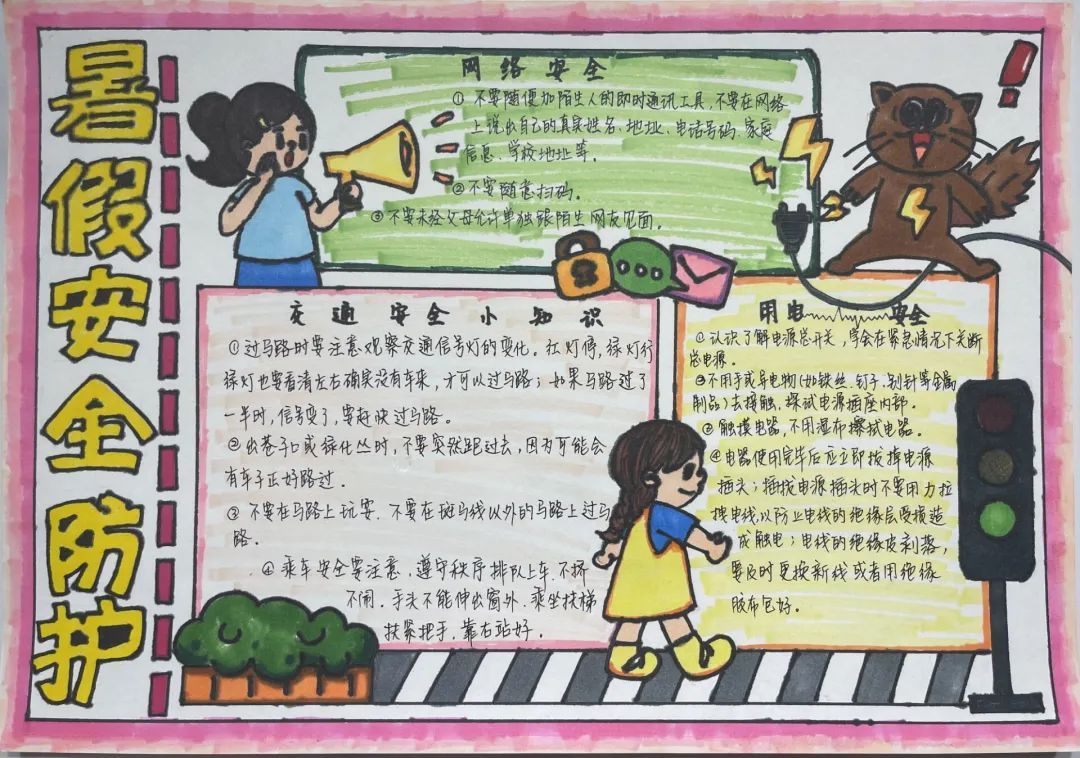 暑假安全防护
网络安全
① 不要随便加陌生人的即时通讯工具,不要在网络
上说出自己的真实姓名、地址、电话号码、家庭
信息、学校地址等。
②不要随意扫码。
③不要未经父母允许单独跟陌生网友见面。
交通安全小知识
①过马路时要注意观察交通信号灯的变化。红灯停,绿灯行
绿灯也要看清左右确实没有车来,才可以过马路;如果马路过了
一半时,信号变了,要赶快过马路。
②出巷子口或绿化丛时,不要突然跑过去,因为可能会
有车子正好路过。
③ 不要在马路上玩耍、不要在斑马线以外的马路上过马
路。
④乘车安全要注意,遵守秩序排队上车、不挤
不闹、手头不能伸出窗外、乘坐扶梯
扶紧把手、靠右站好。
用电安全
①认识了解电源总开关,学会在紧急情况下关断
总电源。
②不用手或导电物(如铁丝、钉子、别针等金属
制品)去接触、探试电源插座内部。
③触摸电器,不用湿布擦拭电器。
④电器使用完毕后应立即拔掉电源
插头;插拔电源插头时不要用力拉
拽电线,以防止电线的绝缘层受损造
成触电;电线的绝缘皮剥落,
要及时更换新线或者用绝缘
胶布包好。